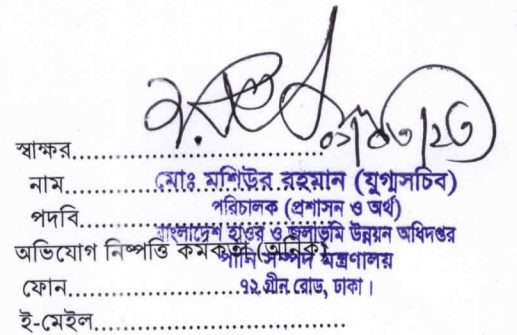 স্বাক্ষর..............................
০১/০৩/২৩
নাম.............মোঃ মশিউর রহমান (যুগ্মসচিব)
পদবি.............পরিচালক (প্রশাসন ও অর্থ)
বাংলাদেশ হাওর ও জলাভূমি উন্নয়ন অধিদপ্তর
অভিযোগ নিষ্পত্তি কর্মকর্তা (অনিক)
পানি সম্পদ মন্ত্রণালয়
ফোন.............৭২ গ্রীন রোড, ঢাকা।
ই-মেইল..............................